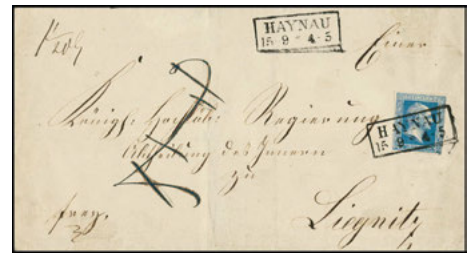 HAYNAU
15 9 4-5
Einer
Königl: Regierung
HAYNAU
15 9 4-5
Abtheilung des Innern
zu
Liegnitz